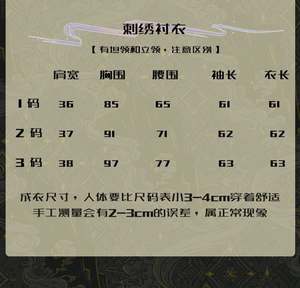 刺绣衬衣
【有坦领和立领，注意区别】
肩宽 胸围 腰围 袖长 衣长
1码 36 85 65 61 61
2码 37 91 71 62 62
3码 38 97 77 63 63
成衣尺寸，人体要比尺码表小3-4cm穿着舒适
手工测量会有2-3cm的误差，属正常现象